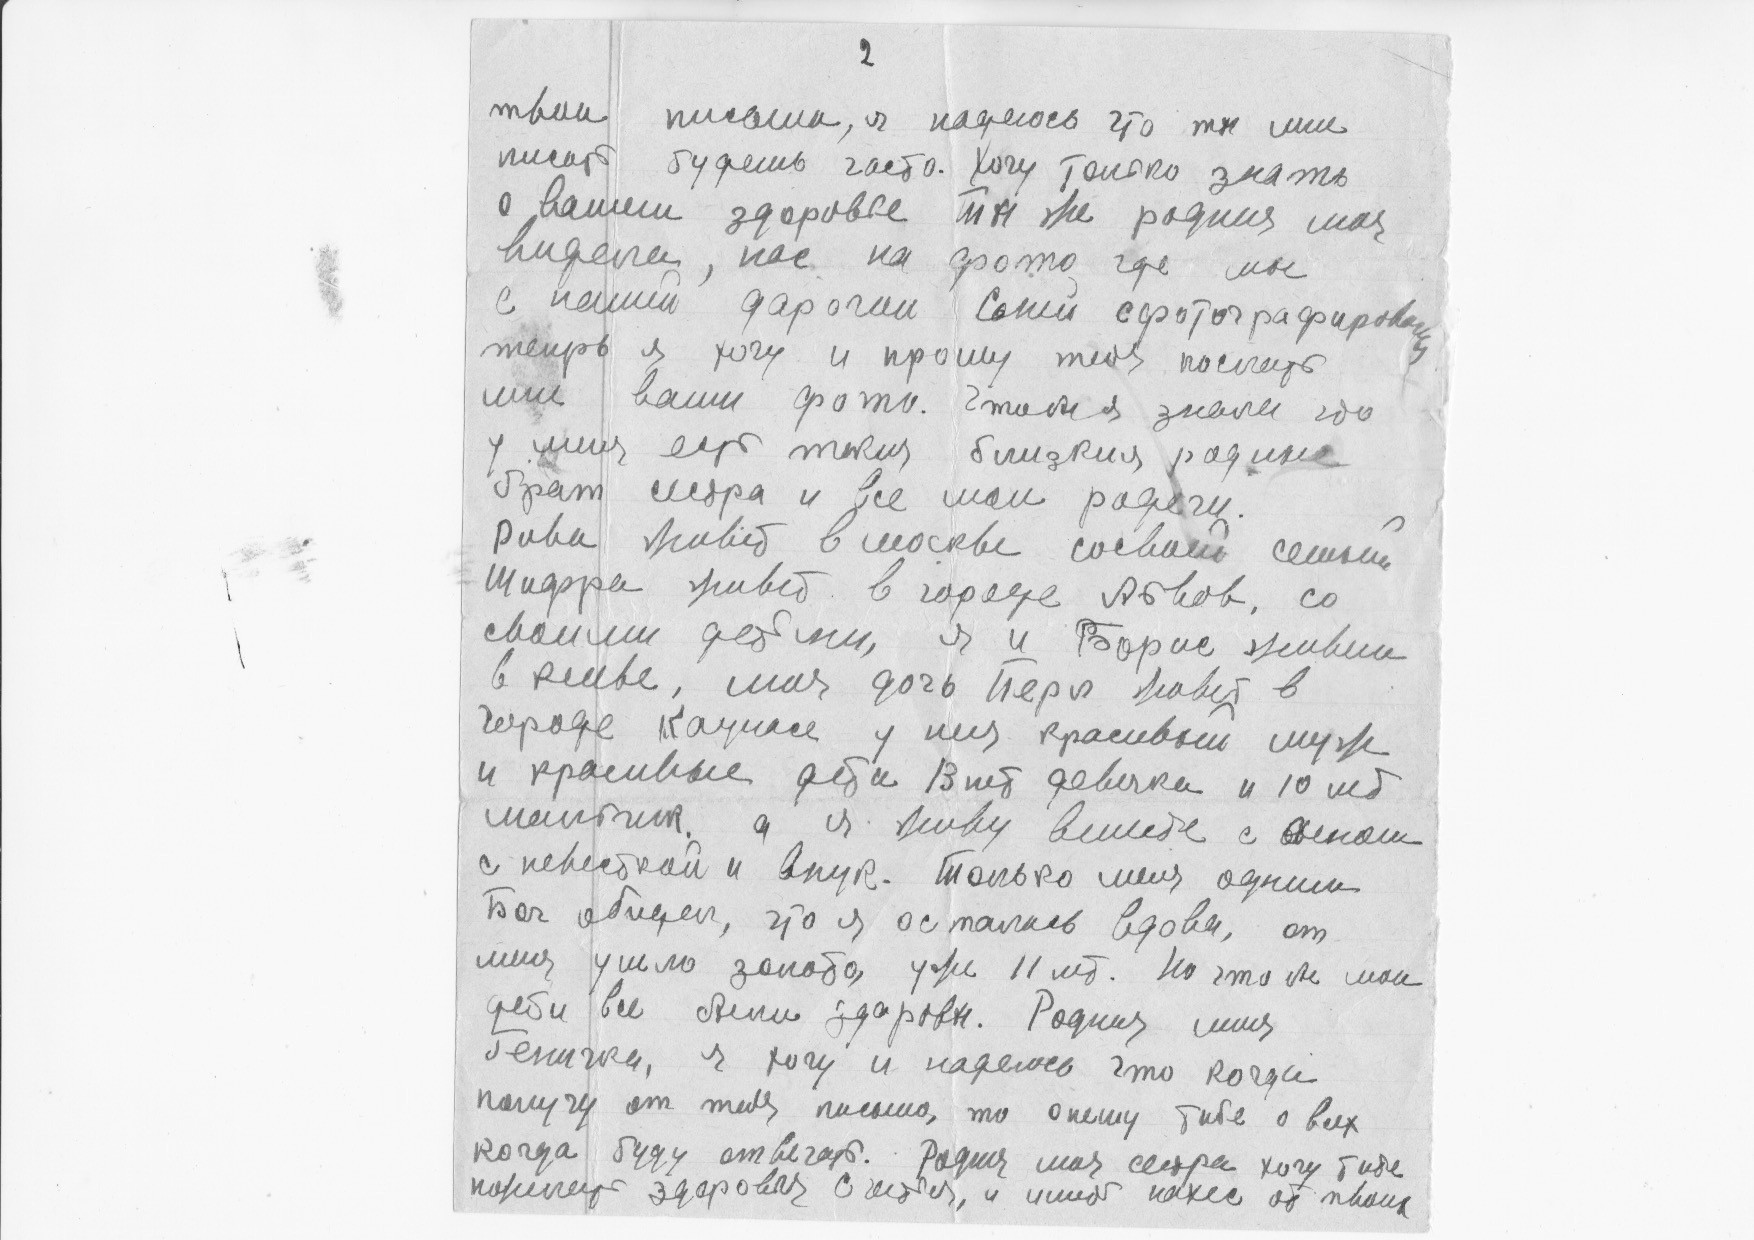 2
твои письма, я надеюсь что ты мне
писать будешь часто. Хочу только знать
о вашем здоровье ты же родния моя
видела, нас на фото где мы
с нашей дарогой Соней сфотографированы
теперь я хочу и прошу тебя послать
мне ваши фото. Чтобы я знала что
у меня есть такия близкия родние
брат сестра и все мои родечи.
Рива живёт в москве сосвоей семьей
Шифра живёт в городе Львов, со
своими детьми, я и Борис живем
в киеве, моя дочь Перл живёт в
городе Каунасе у ния красивый муж
и красивые дети 13 лет девочка и 10 лет
мальчик. а я живу вместе с сыном
с невесткой и внук. Только меня одним
Бог обидел, что я осталась вдова, от
меня ушло золото, уже 11 лет. Но чтобы мои
дети все были здоровы. Родния моя
Беничка, я хочу и надеюсь что когда
получу от тебя письмо, то опешу тибе о всех
когда буду отвечать. Родния моя сестра хочу тибе
пожелать здоровья счастья, и имет нахес от твоих